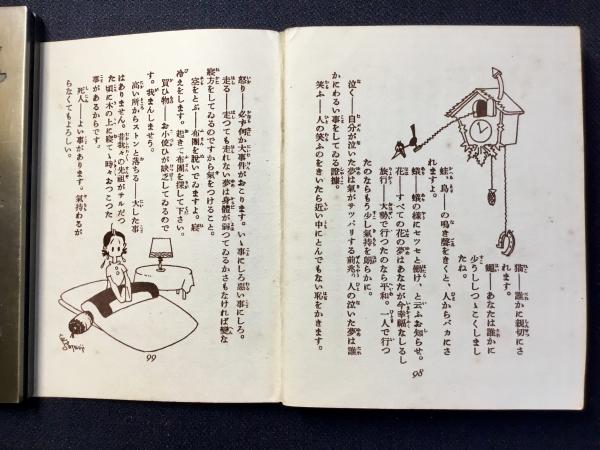 猫――誰かに親切にさ
れます。
蠅――あなたは誰かに
少うししつゝこくしまし
たね。
蛙、鳥――の鳴き聲をきくと、人からバカにさ
れますよ。
蟻――蟻の樣にセツセと働け、と云ふお知らせ。
花――すべての花の夢はあなたが今幸福なしるし
旅行――大勢で行つたのなら平和。一人で行つ
たのならもう少し氣持を朗らかに。
泣く――自分が泣いた夢は氣がサツパリする前兆。人の泣いた夢は誰
かにわるい事をしてゐる證據。
笑ふ――人の笑ふのをきいたら近い中にとんでもない恥をかきます。
98
怒り――必ず何か大事件がおこります。いゝ事にしろ惡い事にしろ。
走る――走つても走れない夢は身體が弱つてゐるかさもなければ變な
寢方をしてゐるのですから氣をつけること。
空をとぶ――布團を脱いでゐますよ。寢
冷えをします。起きて布團を探して下さい。
買ひ物――お小使ひが缺乏してゐるので
す。我まんしませう。
高い所からストンと落ちる――大した事
はありません。昔我々の先祖がサルだつ
た頃に木の上に寢て時々おつこつた
事があるからです。
死人――よい事があります。氣持わるが
らなくてもよろしい。
99